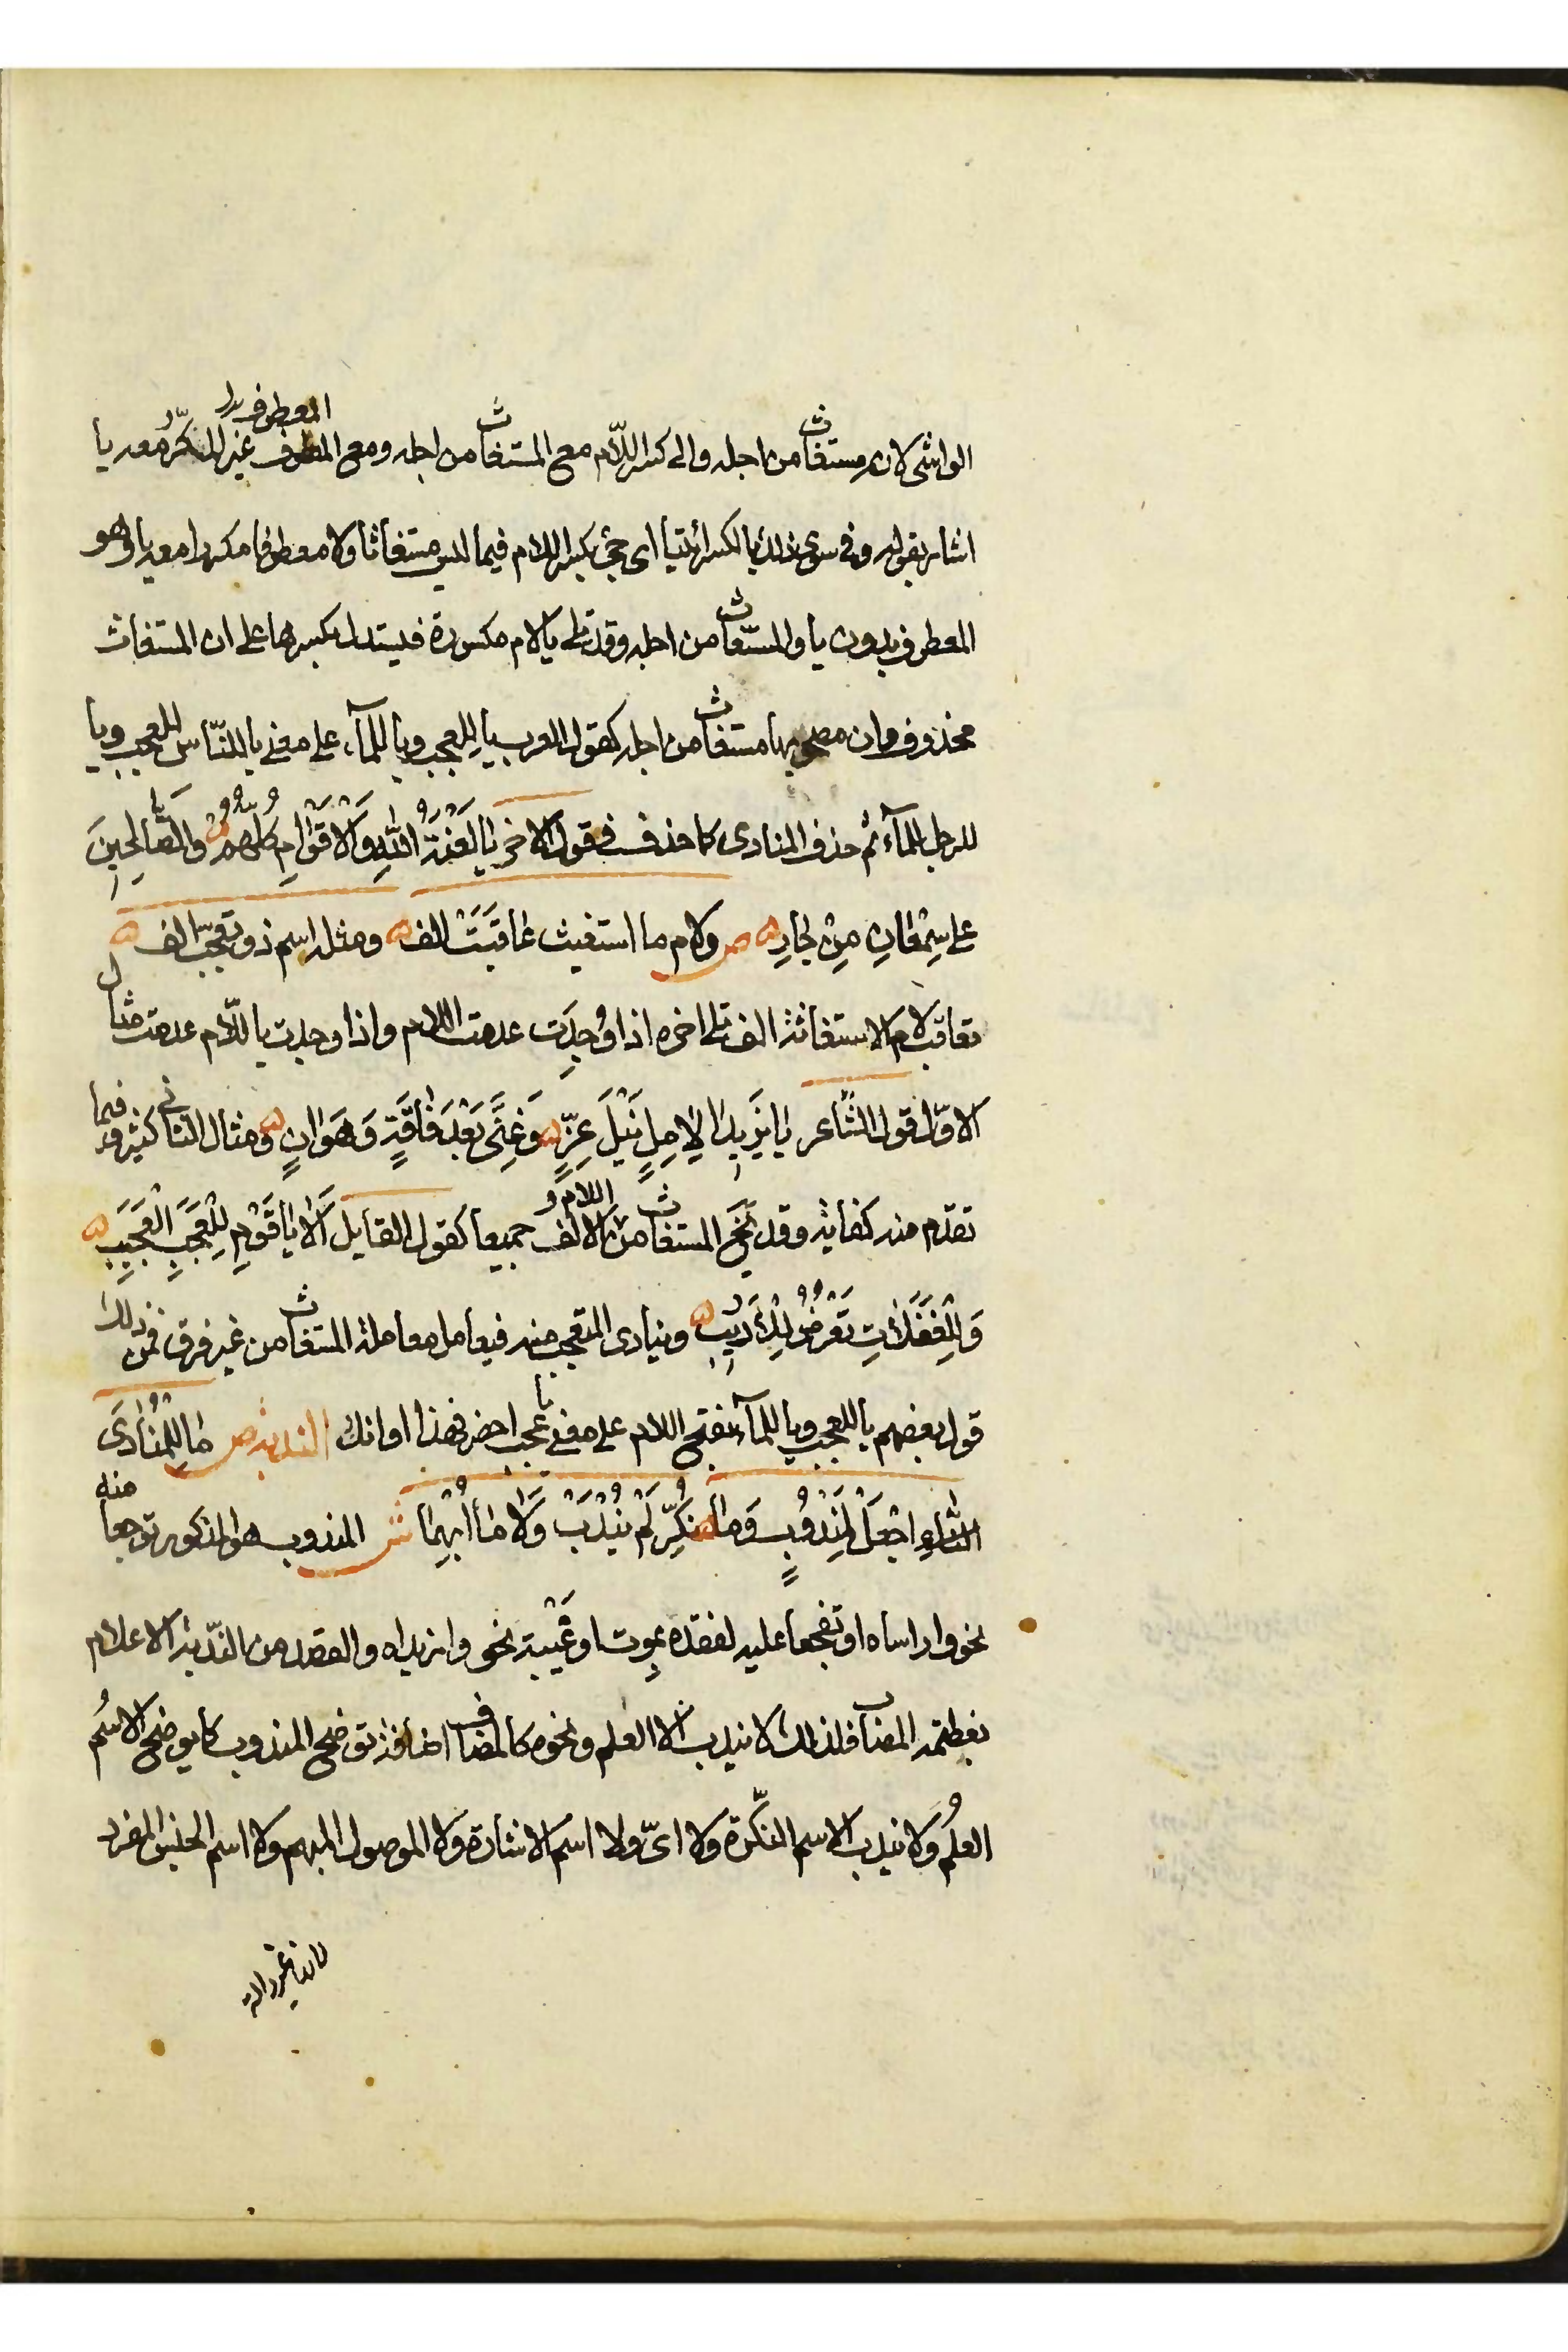 الواشى لانه مستغاث من اجله والى كسر اللّام مع المستغاث من اجله ومع المعطوف غير المكرّر معه يا
اشار بقوله وفى سوى ذلك بالكسر ائتيا اى جئ بكسر اللام فيما ليس مستغاثا ولا معطوفا مكررا معه يا وهو
المعطوف بدون يا والمستغاث من اجله وقد تلى يا لام مكسورة فيستدل بكسرها على ان المستغاث
محذوف وان مصحوبها مستغاث من اجله كقول العرب يا لِلعجب ويا لِلمآء على معنى يا للنّاس للعجب ويا
للرجل للمآء ثم حذف المنادى كما حذف فى قول الاخر يَا لَعْنَةُ اللّٰهِ وَالْاَقْوَامِ كُلِّهُمُ والصَّالِحِينَ
على سِمْعَانِ مِنْ جَارِ ص ولام ما استغيث عَاقَبَتْ الف ومثله اسم ذو تعجّب الف
تعاقب لام الاستغاثة الف تلى اخره اذا وُجِدَت عدمت اللام واذا وجدت يا للّام عدمت مثال
الاوّل قول الشّاعر يَا يَزِيدَا لِاٰمِلٍ نَيْلَ عِزٍّ وَغِنًى بَعْدَ فَاقَةٍ وَهَوَانٍ ومثال الثانى كثير وفيما
تقدّم منه كفاية وقد يخ المستغاث من اللام والالف جميعا كقول القايل اَلَا يَا قَوْمِ لِلْعَجَبِ الْعَجَيِبِ
وَلِلْغَفَلَاتِ تَعْرِضُ لِلْاَرِيبِ وينادى المتعجب منه فيعامل معاملة المستغاث من غير فرق فمن ذلك
قول بعضهم يا للعجب ويا للمآء بفتح اللام على معنى يا عجب احضر فهذا اوانك الندبة ص مَا لِلْمُنَادَى
اجْعَلْ لِمَنْدُوبٍ وَمَا نُكِّرَ لَمْ يُنْدَبْ وَلَا مَا اُبْهِمَا ش المندوب هو المذكور توجعا منه
نحو وا راساه او تفجعا عليه لفقده بِموت او غَيْبة نحو وا زيداه والقصد من النّدبة الاعلام
بعظمة المصاب فلذلك لا يندب الا العلم ونحوه كالمضاف اضافة توضح المندوب كما يوضح الاسْم
العلمُ وَلا يندب الاسم النكّرة وَلا اىّ ولا اسم الاشارة وَلا الموصول المبهم ولا اسم الجنس المفرد